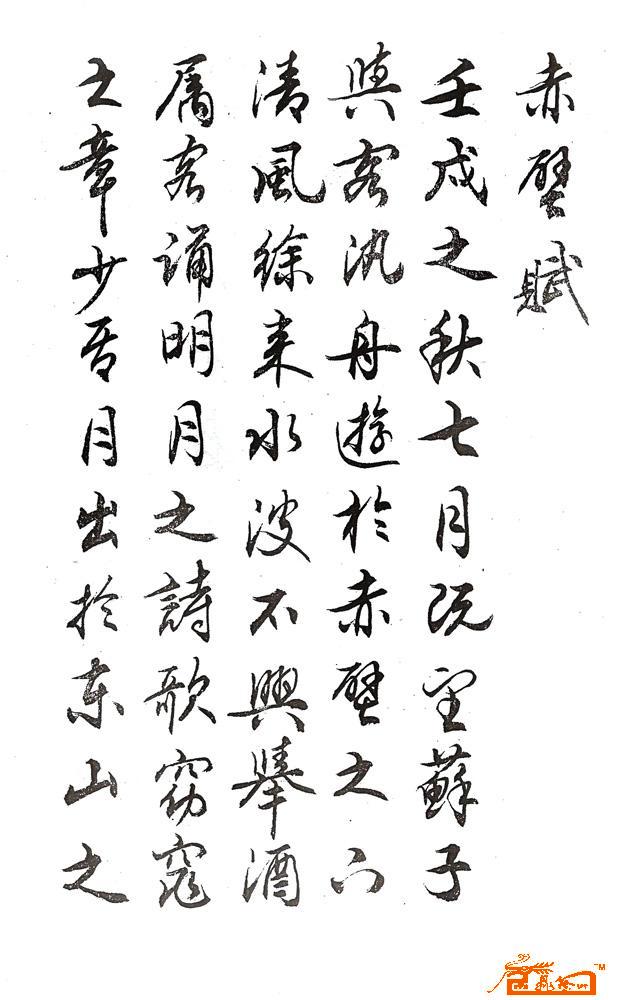 赤壁賦
壬戌之秋七月既望蘇子
與客汎舟遊於赤壁之下
清風徐来水波不興舉酒
属客誦明月之詩歌窈窕
之章少焉月出於东山之
TM